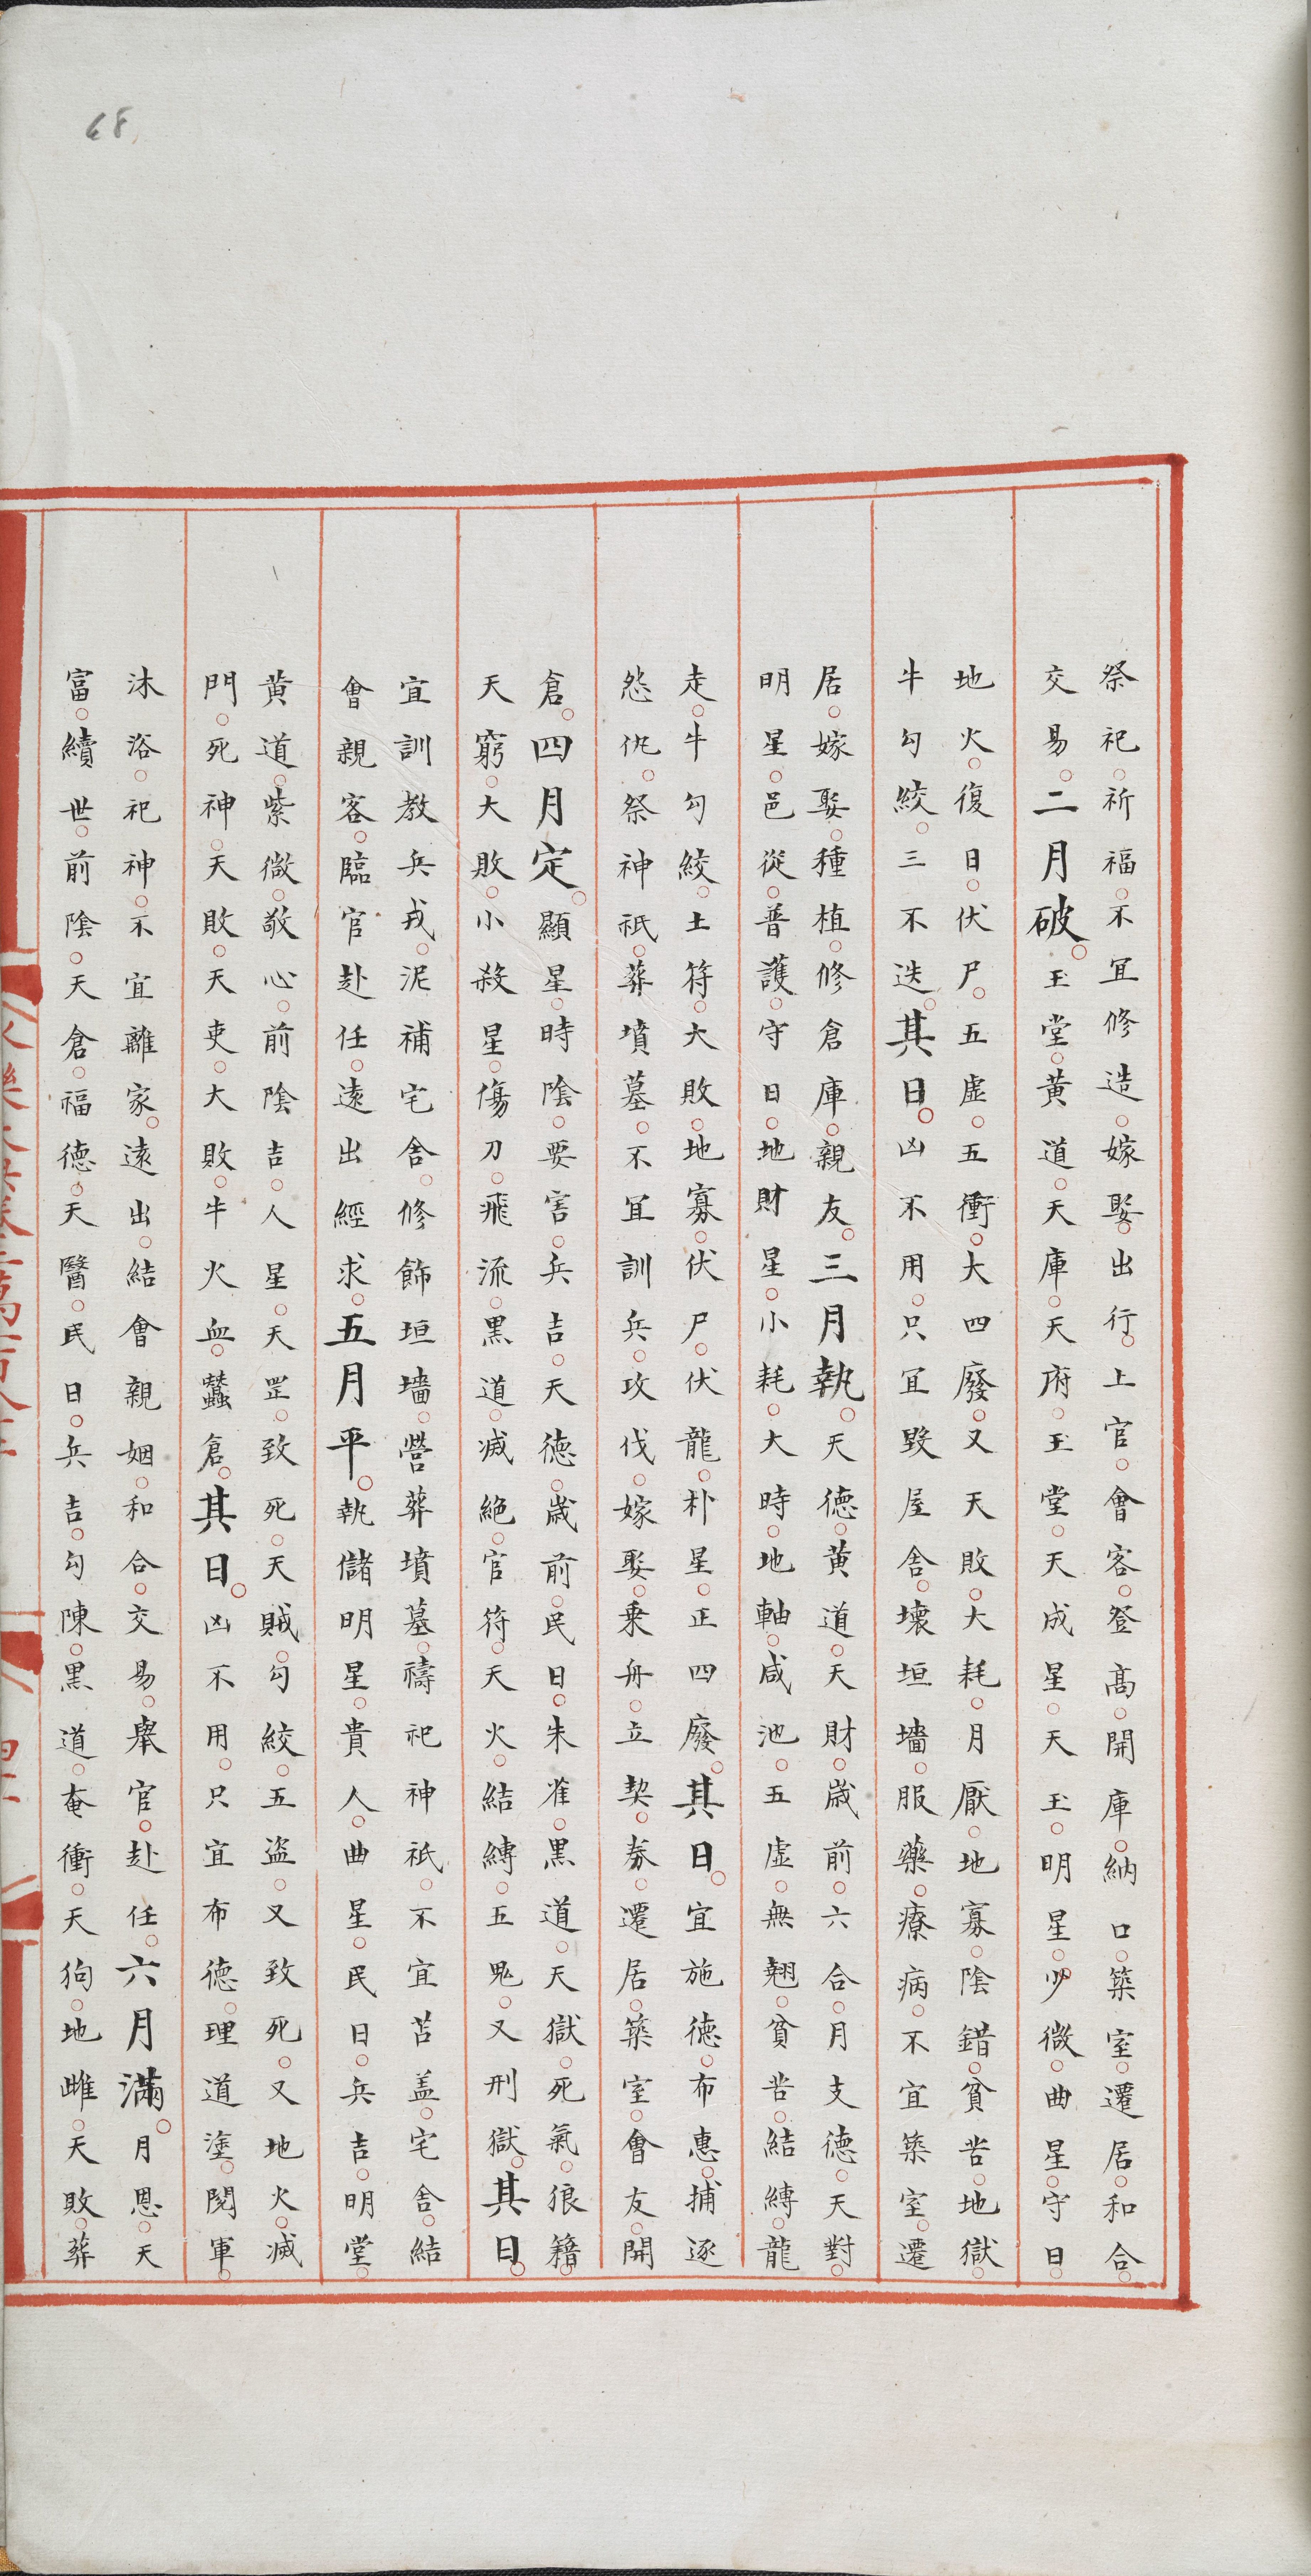 68
祭祀。祈福。不宜修造。嫁娶。出行。上官。會客。登高。開庫。納口。築室。遷居。和合。
交易。二月破。玉堂。黄道。天庫。天府。玉堂。天成星。天玉。明星。少微。曲星。守日。
地火。復日。伏尸。五虚。五衝。大四廢。又天敗。大耗。月厭。地寡。陰錯。貧苦。地獄。
牛勾絞。三不迭。其日。凶不用。只宜毁屋舍。壞垣墻。服藥。療病。不宜築室。遷
居。嫁娶。種植。修倉庫。親友。三月執。天德。黄道。天財。歲前。六合。月支德。天對。
明星。邑從。普護。守日。地財星。小耗。大時。地軸。咸池。五虚。無翹。貧苦。結縛。龍
走。牛勾絞。土符。大敗。地寡。伏尸。伏龍。朴星。正四廢。其日。宜施德。布惠。捕逐
怨仇。祭神祇。葬墳墓。不宜訓兵。攻伐。嫁娶。乗舟。立契。劵。遷居。築室。會友。開
倉。四月定。顯星。時陰。要害。兵吉。天德。歲前。民日。朱雀。黒道。天獄。死氣。狼籍。
天窮。大敗。小殺星。傷刀。飛流。黒道。滅絶。官符。天火。結縛。五鬼。又刑獄。其日。
宜訓教兵戎。泥補宅舍。修飾垣墻。營葬墳墓。禱祀神祇。不宜苫盖。宅舍。結
會親客。臨官赴任。遠出經求。五月平。執儲明星。貴人。曲星。民日。兵吉。明堂。
黄道。紫微。敬心。前陰吉。人星。天罡。致死。天賊。勾絞。五盗。又致死。又地火。滅
門。死神。天敗。天吏。大敗。牛火血。蠶倉。其日。凶不用。只宜布德。理道塗。閲軍。
沐浴。祀神。不宜離家。遠出。結會親姻。和合。交易。舉官。赴任。六月滿。月恩。天
富。續世。前陰。天倉。福德。天醫。民日。兵吉。勾陳。黒道。奄衝。天狗。地雌。天敗。葬